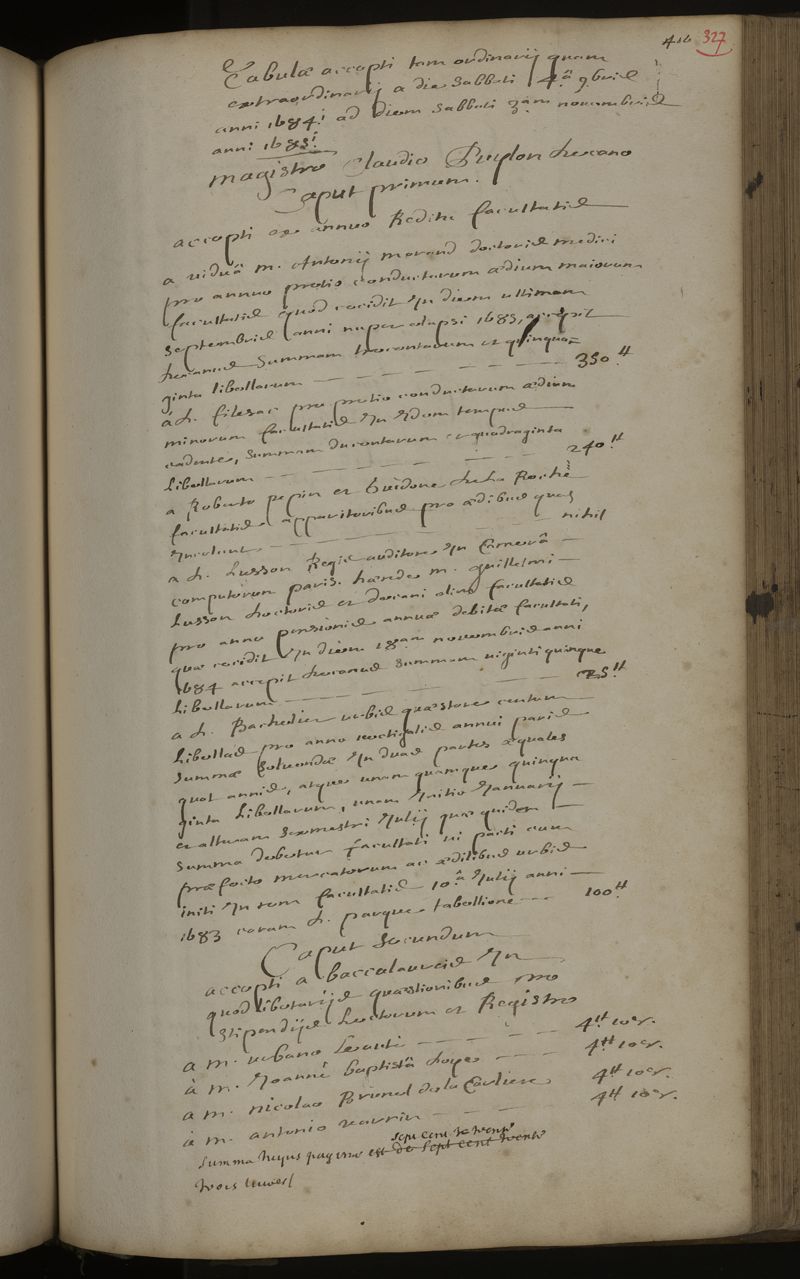 416 327
Tabulæ accepti tam ordinarij quam
extraordinarij a die sabbati 4.â 9bris
anni 1684.i ad diem sabbati 3am novembris
anni 1685.i
magistro Claudio Puylon decano
Caput primum.
accepti ex annuo Reditu facultatis
a viduâ m. Antonij morand doctoris medici
pro annuo pretio conductarum ædium maiorum
facultatis quod cecidit In diem ultimam
septembris anni nuper elapsi 1685, accepit
decanus summam trecentarum et quinqua=
ginta libellarum 350 ♯
a d. filesac pro pretio conductarum ædium
minorum facultatis In Idem tempus
cadente, summam ducentarum et quadraginta
libellarum 240 ♯
a Roberto pepin et Guidone de la Roche
facultatis apparitoribus pro ædibus quas
Incolunt nihil
a d. Lusson Regis auditore In Camerâ
computorum paris. hærede m. guillelmi
Lusson doctoris et decani olim facultatis
pro anno pensionis annuæ debitæ facultati,
quæ cecidit In diem 18am novembris anni
1684 accepit decanus summam viginti quinque
libellarum 25 ♯
a d. Bachelier urbis quæstore centum
libellas pro anno vectigalis annui paris
summæ solvendæ In duas partes æquales
quot annis, atque unam quamque quinqua
ginta libellarum, unam Initio Januarij
et alteram semestri Julij quæ quidem
summa debetur facultati vi pacti cum
præfecto mercatorum ac ædilibus urbis
initi In rem facultatis 10.â Julij anni
1683 coram d. parque tabellione 100 ♯
Caput secundum
accepti a baccalaureis In
quodlibetarijs quæstionibus pro
stipendijs doctorum et Registro
a m. urbano Leaulté 4 ♯ 10 s.
à m. Joanne baptistâ doye 4 ♯ 10 s.
a m. nicolao Brunel de la Carliere 4 ♯ 10 s.
à m. antonio maurin 4 ♯ 10 s.
summa hujus paginæ est de sept cent trente
sept cent trente
trois livres